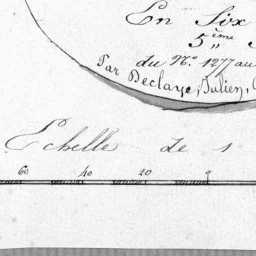 En Six
5ème
du No. 1277 au
Par Declaye, Julien,
Echelle de 1
60 40 20 0